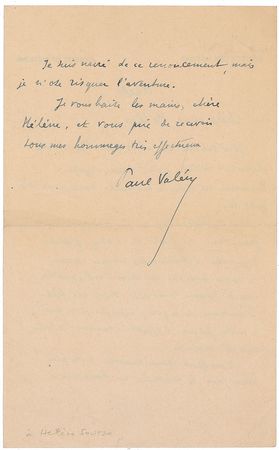 Je suis navré de ce renoncement, mais
je n'ose risquer l'aventure.
Je vous baise les mains, chère
Hélène, et vous prie de recevoir
tous mes hommages très affectueux
Paul Valéry
à Hélène